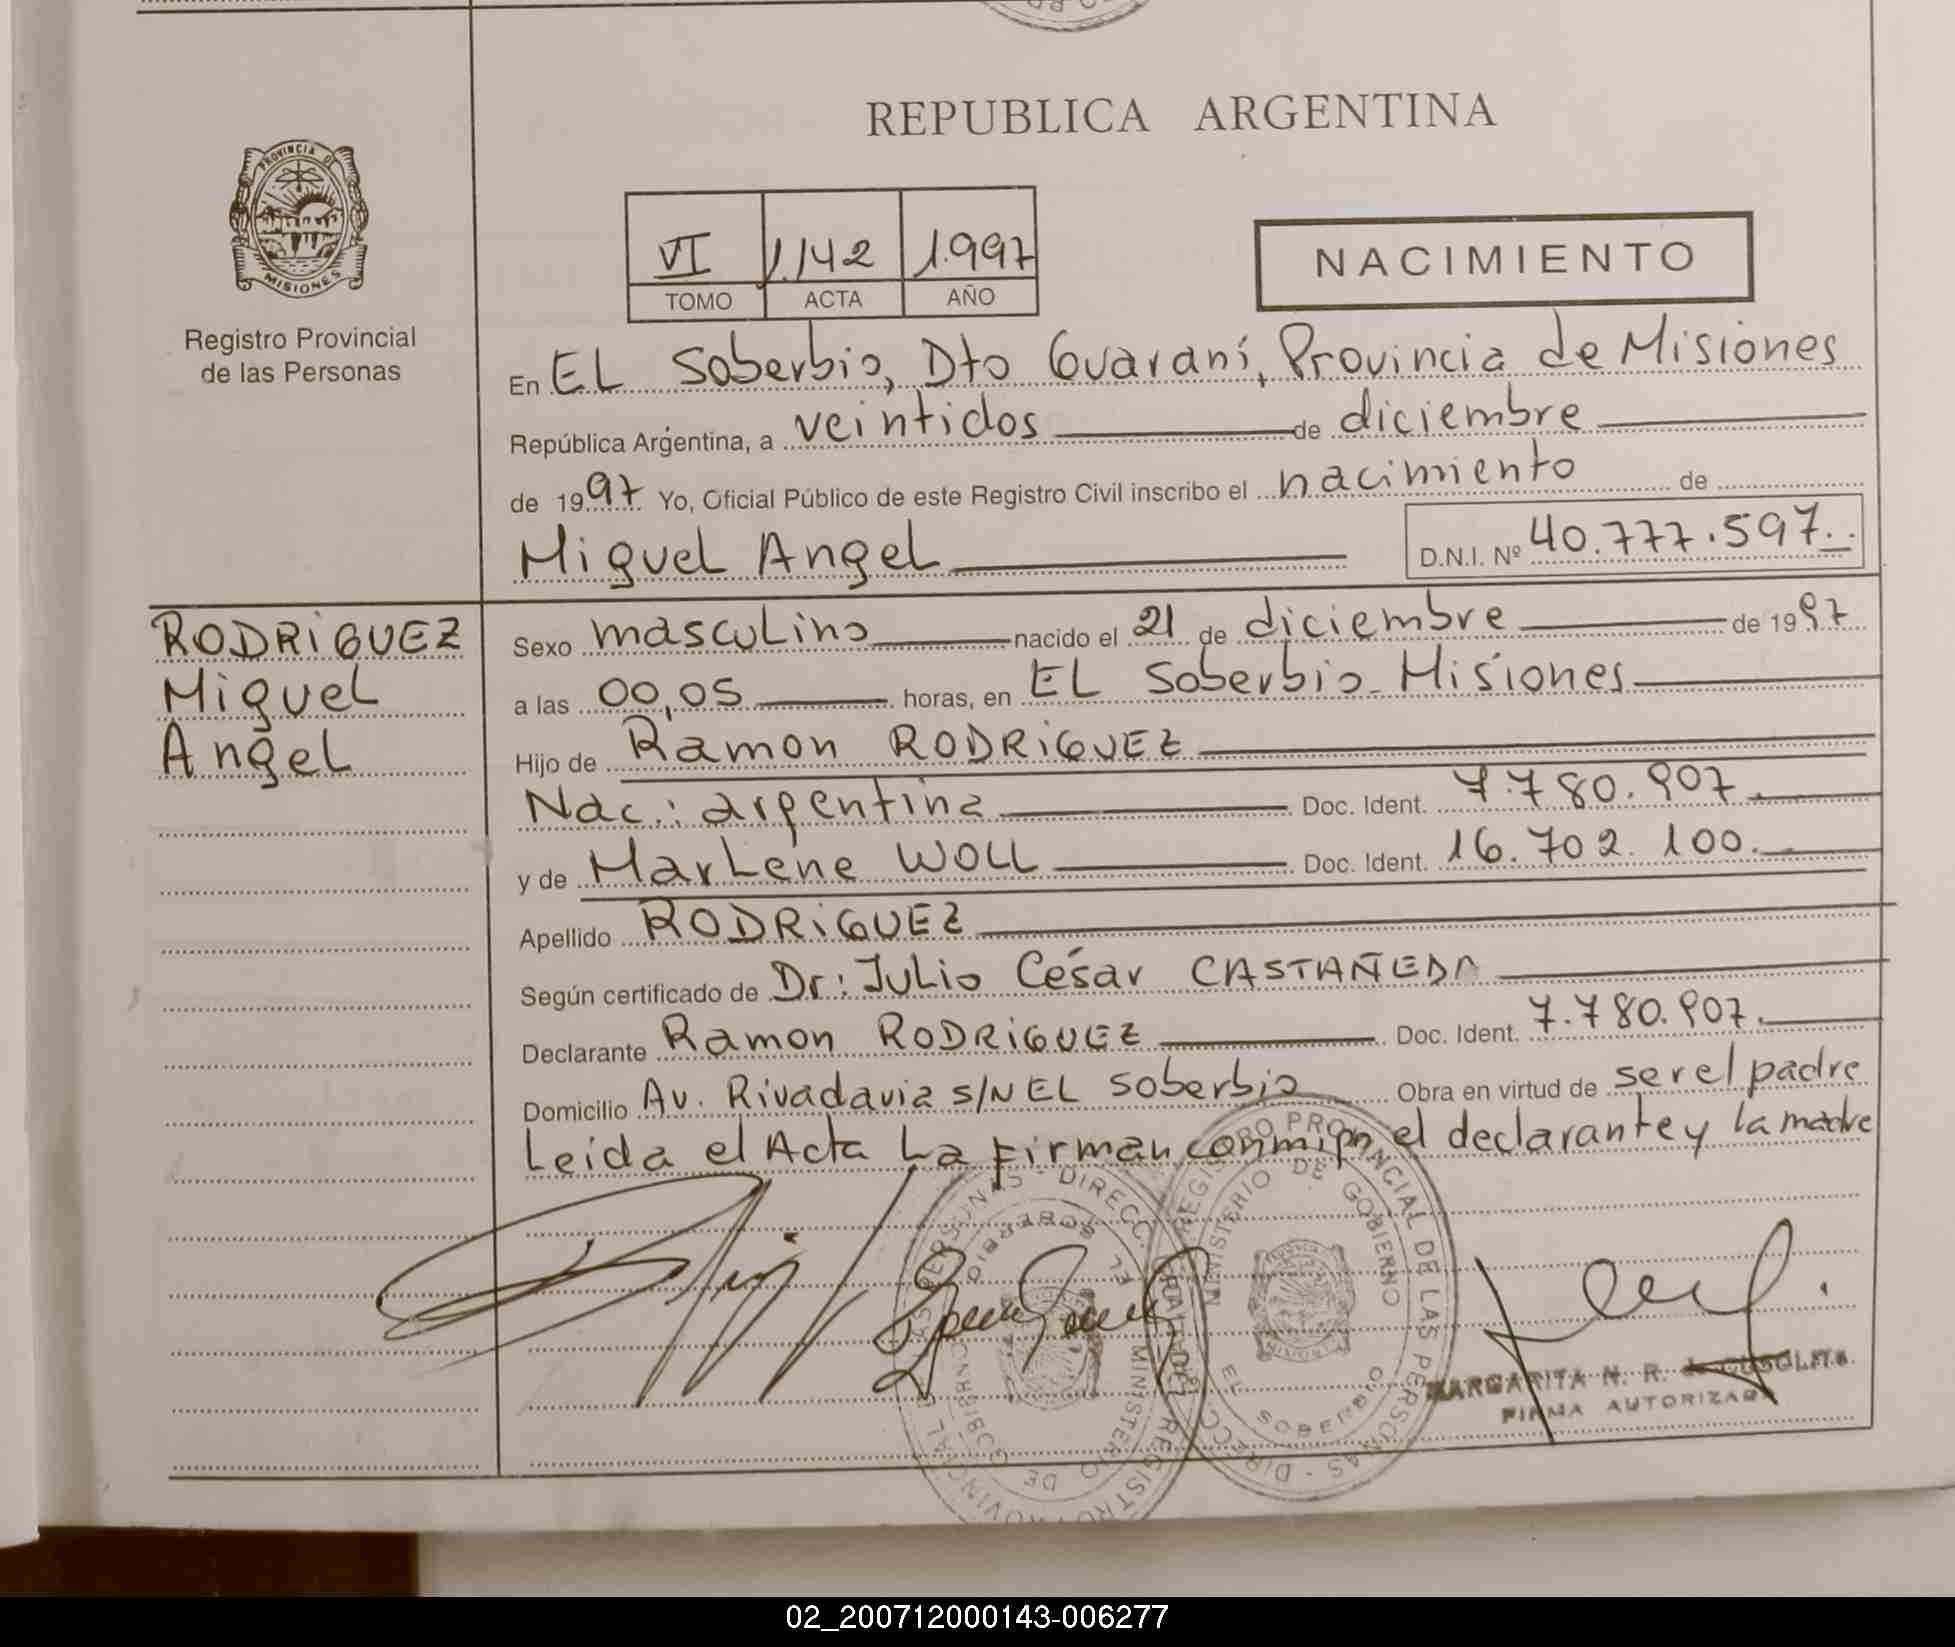 REPUBLICA ARGENTINA
PROVINCIA DE
MISIONES
Registro Provincial
de las Personas
VI 1.142 1.997
TOMO ACTA AÑO
NACIMIENTO
En EL Soberbio, Dto Guaraní, Provincia de Misiones
República Argentina, a veintidos de diciembre
de 1997 Yo, Oficial Público de este Registro Civil inscribo el nacimiento de
Miguel Angel D.N.I. Nº 40.777.597.
RODRIGUEZ
Miguel
Angel
Sexo masculino nacido el 21 de diciembre de 1997
a las 00,05 horas, en EL Soberbio - Misiones
Hijo de Ramon RODRIGUEZ
Nac.: argentina Doc. Ident. 7.780.907.
y de Marlene WOLL Doc. Ident. 16.702.100.
Apellido RODRIGUEZ
Según certificado de Dr: Julio César CASTAÑEDA
Declarante Ramon RODRIGUEZ Doc. Ident. 7.780.907.
Domicilio Av. Rivadavia s/N EL Soberbio Obra en virtud de ser el padre
Leida el Acta la firman conmigo el declarante y la madre
REGISTRO PROVINCIAL DE LAS PERSONAS - DIRECC.
MINISTERIO DE GOBIERNO
EL SOBERBIO
REGISTRO PROVINCIAL DE LAS PERSONAS - DIRECC.
MINISTERIO DE GOBIERNO
EL SOBERBIO
MARGARITA N. R. de
FIRMA AUTORIZADA
02_200712000143-006277